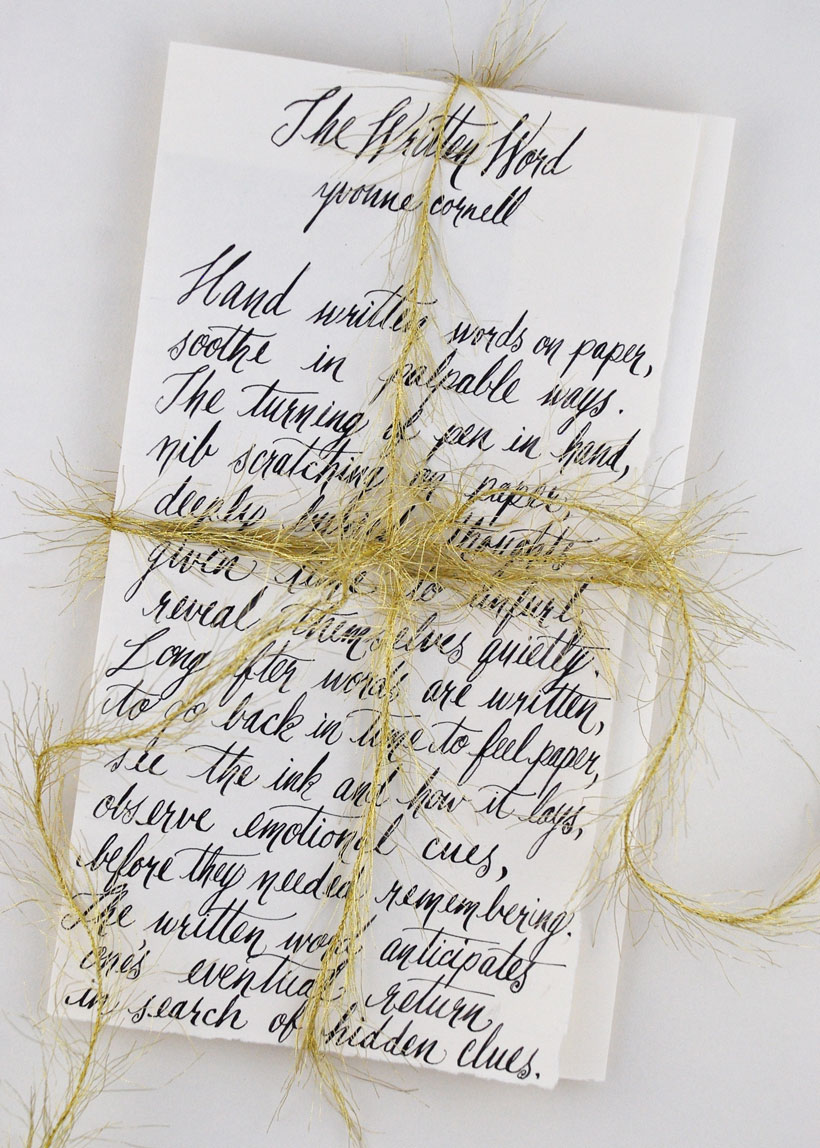 The Written Word
yvonne cornell
Hand written words on paper,
soothe in palpable ways.
The turning of pen in hand,
nib scratching on paper,
deeply buried thoughts
given time to unfurl
reveal themselves quietly.
Long after words are written,
to go back in time to feel paper,
see the ink and how it lays,
observe emotional cues,
before they needed remembering.
The written word anticipates
one's eventual return
in search of hidden clues.